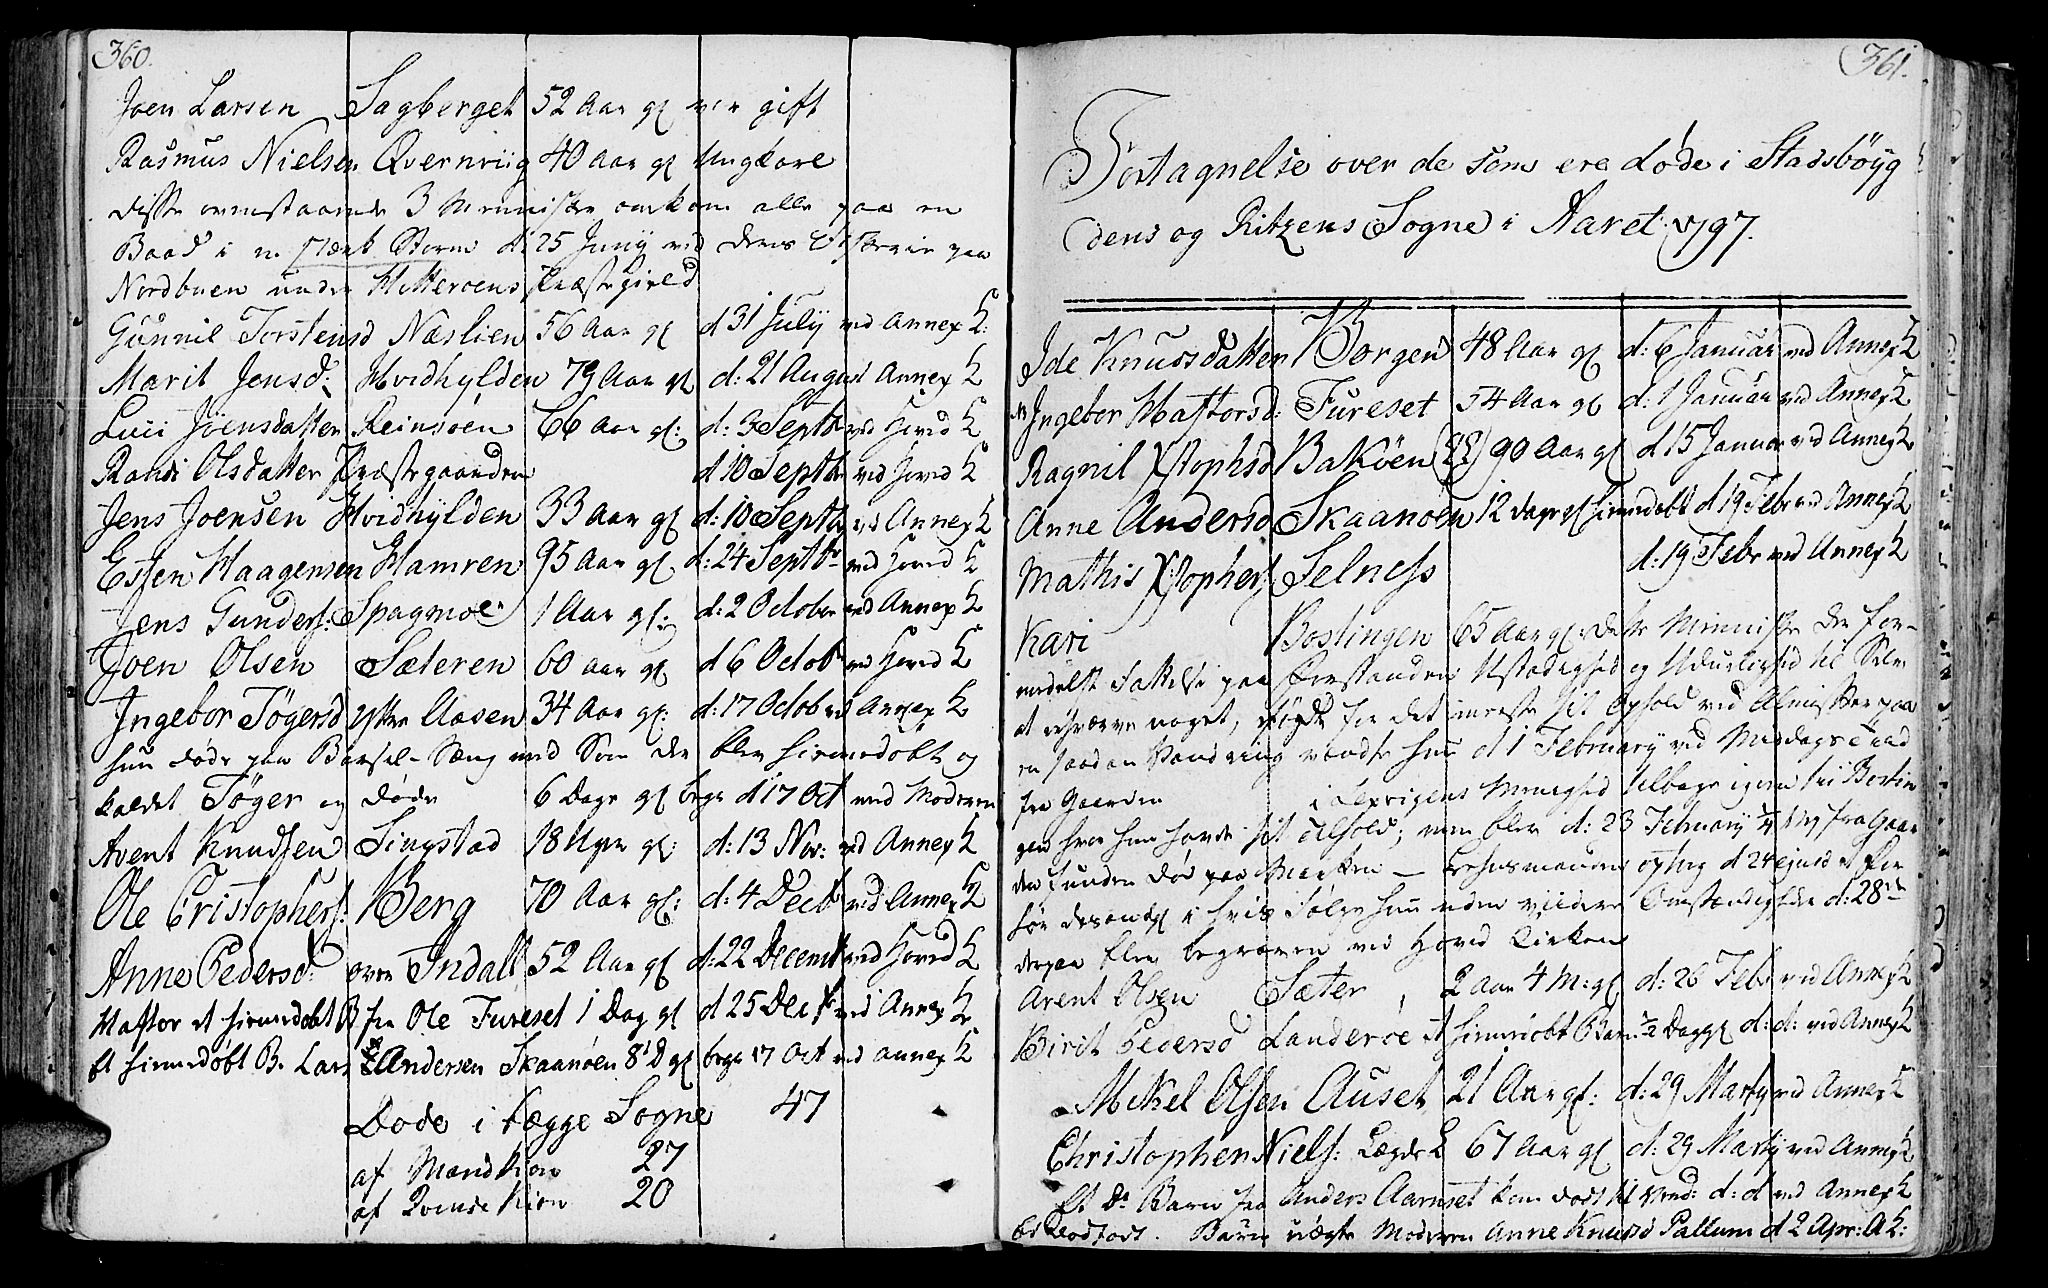 360.
Joen Larsen Sagberget 52 Aar gl var gift
Rasmus Nielsen Qvernviig 40 Aar gl Ungkarl
disse ovenstaaende 3 Mennisker omkom alle paa en
Baad i en stærk Storm d: 25 Junij ved deres paa
Nordbuen under Hitteroens Præstegield
Gunnil Torstensd Næslien 56 Aar gl d 31 Julij ved Annex K:
Marit Jensd: Hvidhylden 79 Aar gl d: 21 August Annex K
Luci Joensdatter Reinsøen 66 Aar gl: d: 3 Septbr ved Hoved K
Randi Olsdatter Præstegaarden d 10 Septbr ved Hoved K
Jens Joensen Hvidhylden 33 Aar gl d: 10 Septbr ved Annex K
Esten Haagensen Hamren 95 Aar gl d: 24 Septbr ved Hoved K
Jens Gunders: Spagmoe 1 Aar gl: d: 2 October ved Annex K
Joen Olsen Sæteren 60 Aar gl d 6 Octob ved Hoved K
Ingebor Tøgersd ytter Aasen 34 Aar gl: d: 17 Octob ved Annex K
hun døde paa Barsel-Seng med Søn der blev hiemmedøbt og
kaldet Tøger og døde 6 Dage gl begr d 17 Oct med Moderen
Arent Knudsen Singstad 18 Uger gl: d: 13 Nov: ved Annex K
Ole Cristophers: Berg 70 Aar gl: d: 4 Decb ved Annex K
Anne Pedersd: over Indalt 52 Aar gl d: 22 Decemb ved Hoved K
Haftor et hiemmedøbt B fra Ole Fureset 1 Dag gl d 25 Decbr ved Annex K
Et hiemmedøbt B. Lars Andersen Skaanøen 8 D gl begr 17 Oct ved Annex K
Døde i begge Sogne 47
af Mandkiøn 27
af Qvindekiøn 20
361.
Fortegnelse over de som ere døde i Stadsbøyg
dens og Ritzens Sogne i Aaret 1797.
Ide Knudsdatter Borgen 48 Aar gl d: 6 Januar ved Annex K
Ingebor Haftorsd: Fureset 54 Aar gl d: 1 Januar ved Annex K
Ragnil Xstophsd Bakøen (88) 90 Aar gl d 15 Januar ved Annex K
Anne Andersd Skaanøen 12 dage gl hiemmedøbt d 19 Febr ved Annex K
Mathis Xstophers Selness d: 19 Febr ved Annex K
Kari Bostingen 65 Aar gl: dette Menniske der for-
medelst paa Forstanden Ustadighed og Uduelighed til Selv
at erhværve noget, søgte for det meste sit Ophold ved Almisser paa
en saadan Vandring vandte hun d 1 February ved Middags Tiid
fra Gaarden i Lexvigens Menighed tilbage igien til Bostin
gen hvor hun havde sit Tilhold; men blev d: 23 February 1/4 Miil fra Gaar
den funden død paa Marken - Lehnsmanden optog d 24 ejusd et For
hør desangl i hvis Følge hun uden viidere Omstændighder d: 28de
derpaa blev begraven ved Hoved Kirken
Arent Olsen Sæter 2 Aar 4 M: gl d: 26 Febr ved Annex K
Birit Pedersd Landerøe et hiemedøbt Barn 1/2 Dag gl d: d: ved Annex K
Mikel Olsen Auset 21 Aar gl: d: 29 Marty ved Annex K
Christopher Niels: Lægdel 67 Aar gl d: 29 Marty ved Annex K
Et Do Barn fra Anders Aarnset kom dødt til Verd: d: d ved Annex K
Et dødfødt Barn uægte Moderen Anne Knudsd Pallum d 2 Apr: A K: